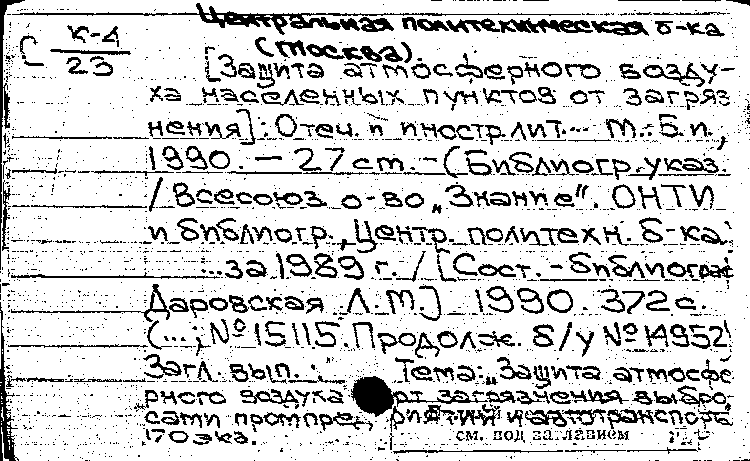 Центральная политехническая б-ка
(Москва).
С К-4
23
[Защита атмосферного возду-
ха населенных пунктов от загряз
нения]: Отеч. и иностр. лит... М.: Б.и.,
1990. — 27 ст. - (Библиогр. указ.
/ Всесоюз. о-во „Знание". ОНТИ
и библиогр., Центр. политехн. б-ка.
...за 1989 г. / [Сост. - библиограф
Даровская Л.М] 1990. 372 с.
(...; №15115. Продолж. б/у №14952
Загл. вып.: Тема: „Защита атмосфе
рного воздуха от загрязнения выбро
сами промпред, риятий и автотранспорта
170 экз.
см. под заглавием